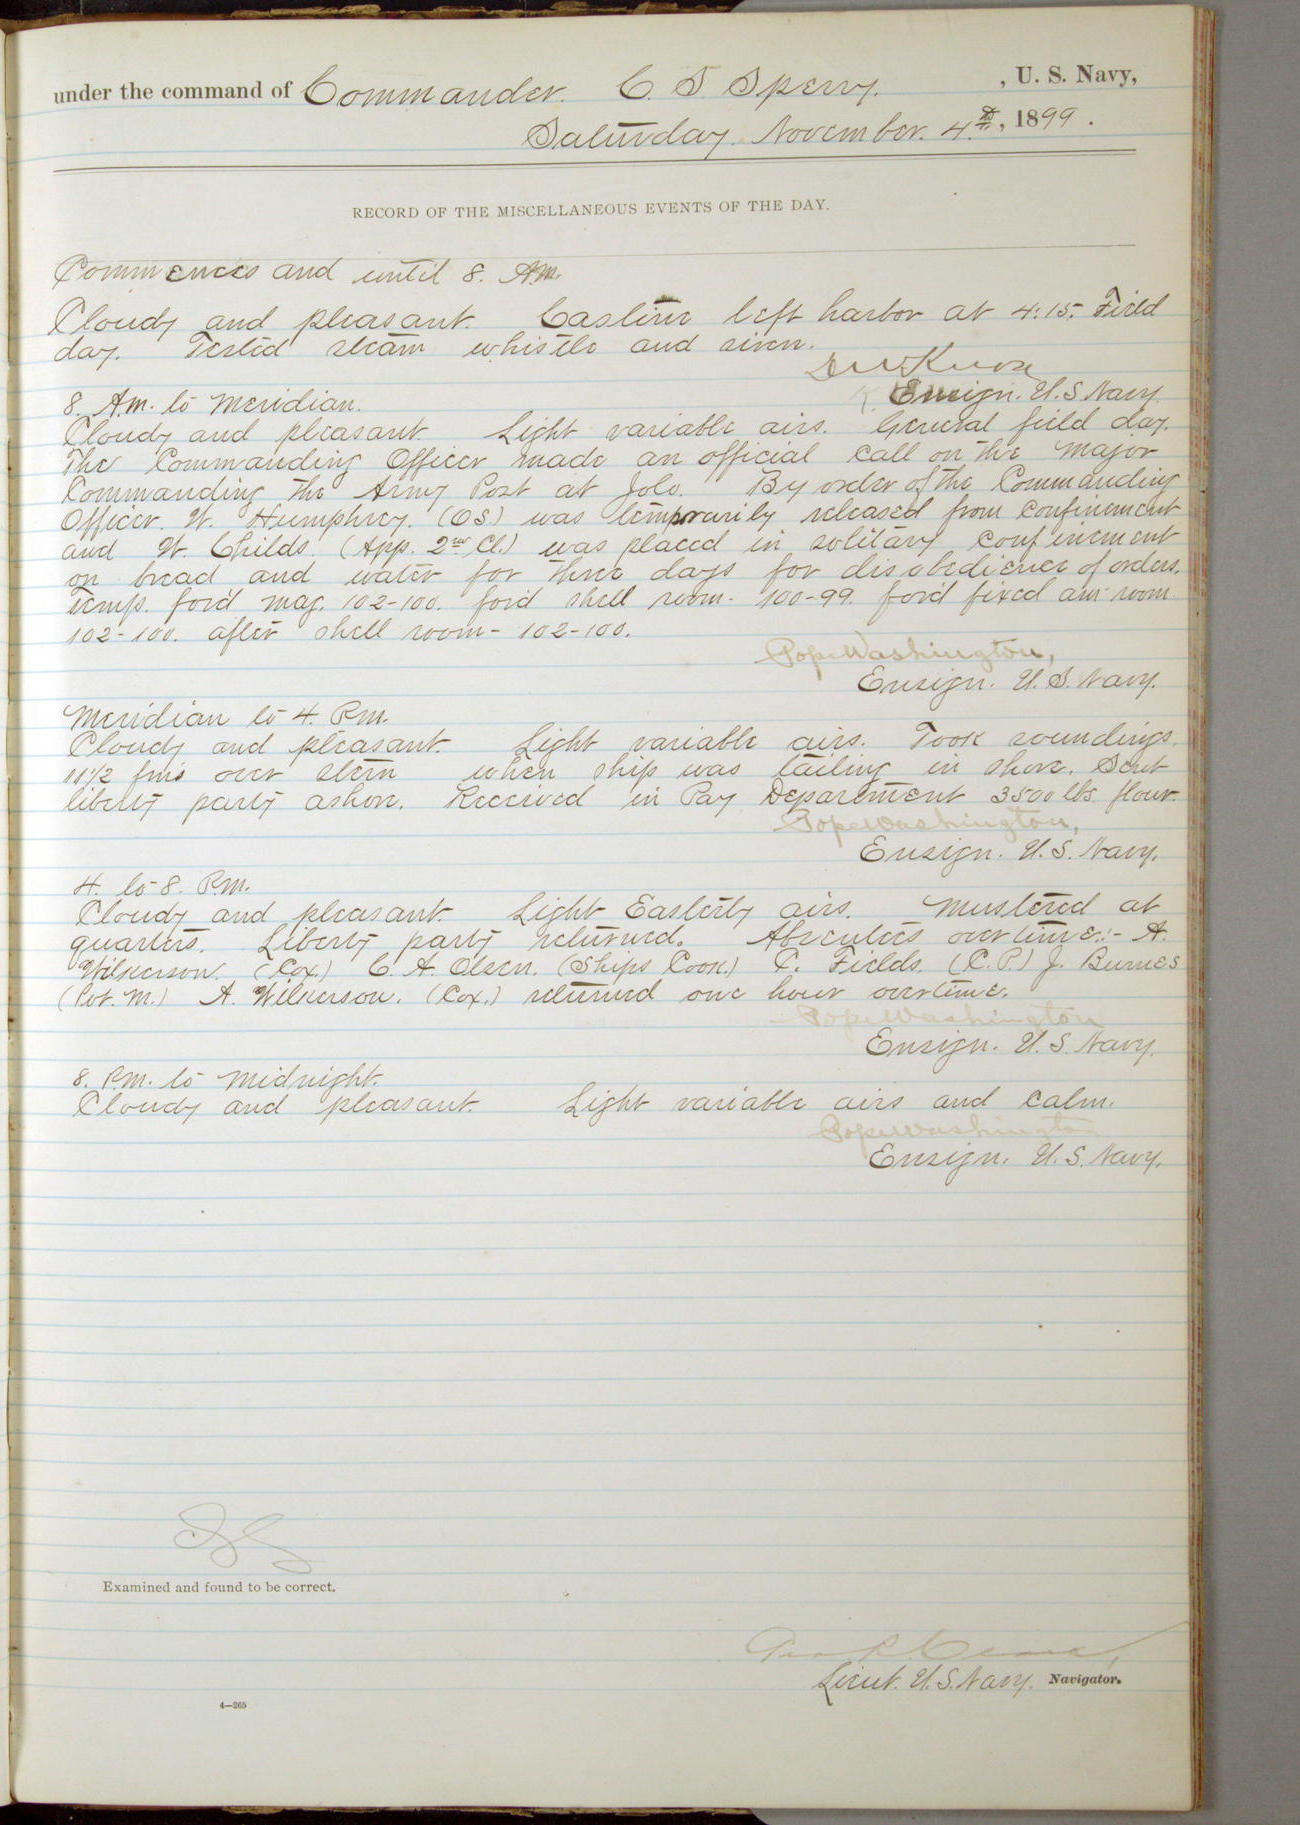 under the command of Commander. C. S. Sperry. , U. S. Navy,
Saturday. November. 4th, 1899.
RECORD OF THE MISCELLANEOUS EVENTS OF THE DAY.
Commences and until 8. A.M.
Cloudy and pleasant. Castine left harbor at 4:15. Field
day. Tested steam whistle and siren.
D W Knox
Ensign. U.S. Navy.
8. A.m. to Meridian.
Cloudy and pleasant. Light variable airs. General field day.
The Commanding Officer made an official call on the Major
Commanding the Army Post at Jolo. By order of the Commanding
Officer. W. Humphrey. (OS.) was temporarily released from confinement
and W. Childs. (App. 2nd Cl.) was placed in solitary confinement
on bread and water for three days for disobedience of orders.
Temp. for'd mag. 102-100. for'd shell room- 100-99. for'd fixed am room
102-100. after shell room- 102-100.
Pope Washington,
Ensign. U. S. Navy.
Meridian to 4. P.m.
Cloudy and pleasant. Light variable airs. Took soundings.
11 1/2 fms over stern when ship was tailing in shore. Sent
liberty party ashore. Received in Pay Department 3500 lbs. flour.
Pope Washington,
Ensign. U. S. Navy.
4. to 8. P.m.
Cloudy and pleasant. Light Easterly airs. Mustered at
quarters. Liberty party returned. Absentees overtime:- A.
Wilkerson. (Cox.) C. A. Olsen. (Ships Cook.) C. Fields. (C.P.) J. Burnes
(Pot. M.) A. Wilkerson. (Cox.) returned one hour overtime.
Pope Washington
Ensign. U. S. Navy.
8. P.m. to Midnight.
Cloudy and pleasant. Light variable airs and calm.
Pope Washington
Ensign. U. S. Navy.
Examined and found to be correct.
Lieut. U. S. Navy. Navigator.
4—265